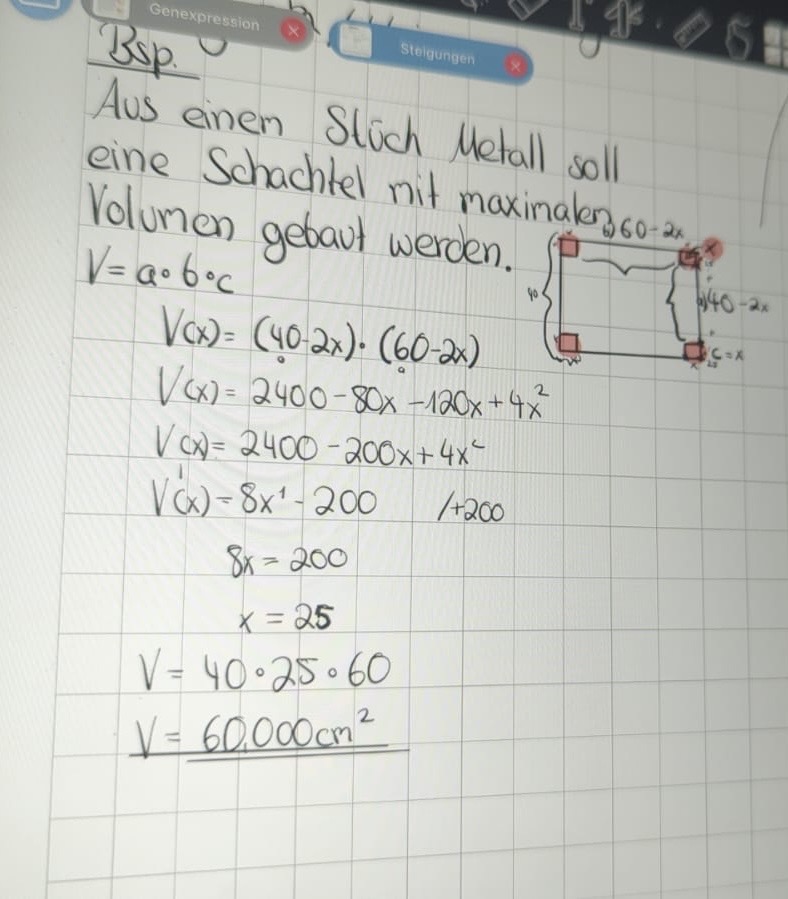 Genexpression
Steigungen
Bsp.
Aus einem Stück Metall soll
eine Schachtel mit maximalen
Volumen gebaut werden.
V = a∘b∘c
V(x) = (40-2x)·(60-2x)
V(x) = 2400 - 80x - 120x + 4x²
V(x) = 2400 - 200x + 4x²
V'(x) = 8x¹ - 200 /+200
8x = 200
x = 25
V = 40∘25∘60
V = 60.000cm²
60-2x
x
40
40-2x
c = x